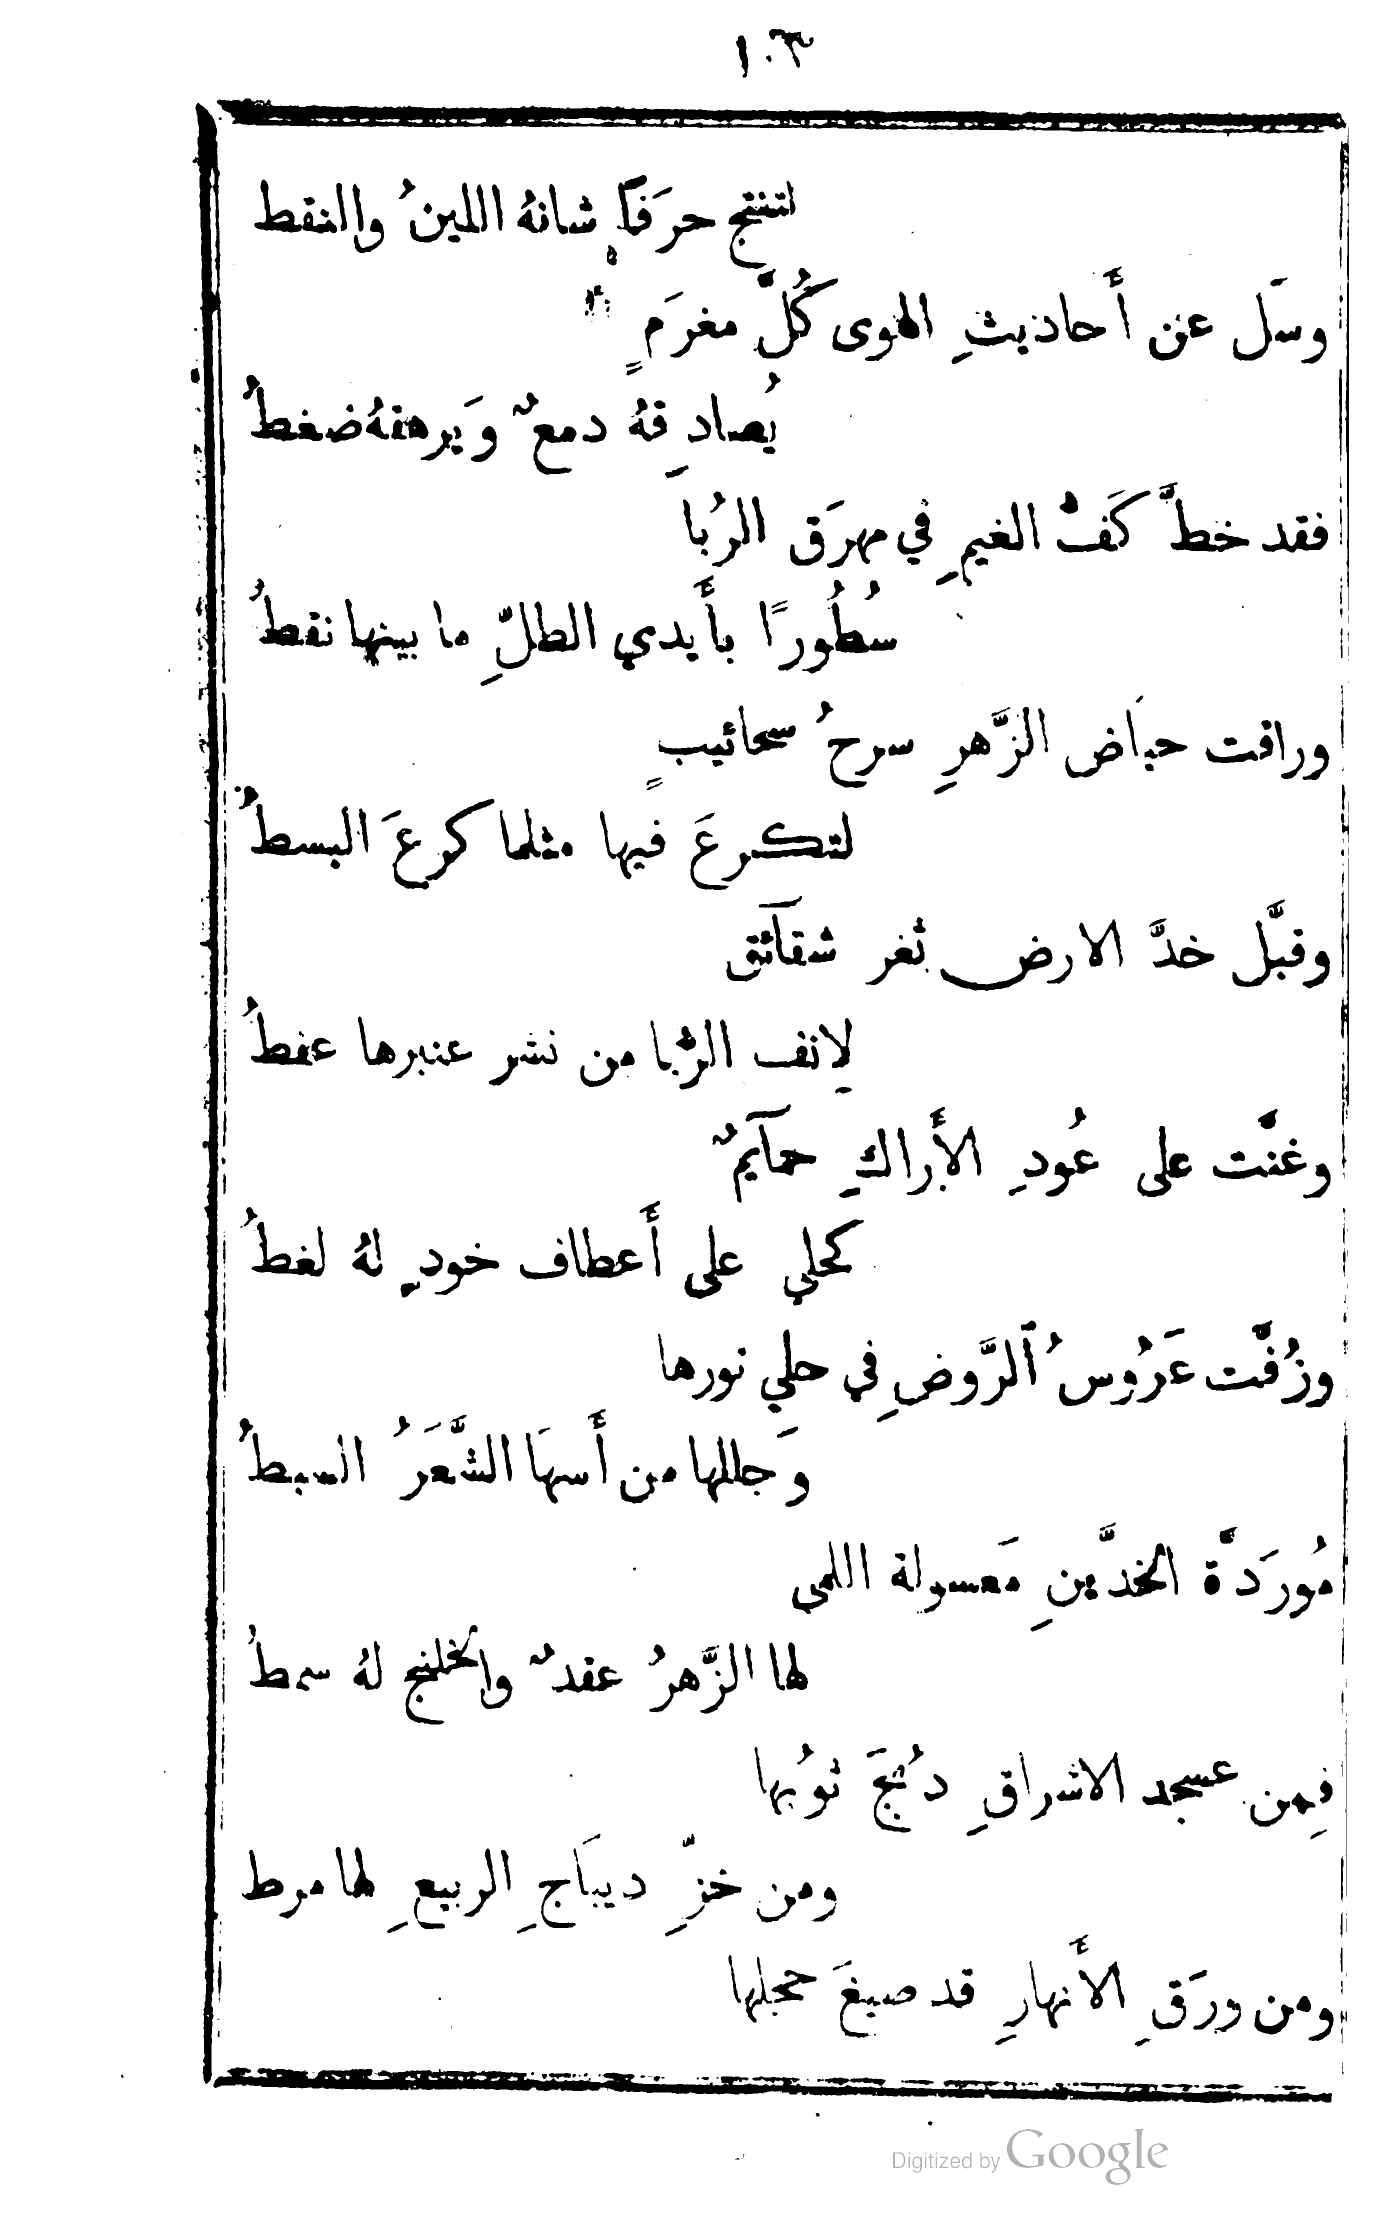 ١٠٣
لتنتج حرَفًا شانهُ اللينُ والنقط
وسَل عن أَحاديثِ الهوى كُلَّ مغرَمٍ
يُصادِفهُ دمعٌ وَيرهقهُ ضغطُ
فقد خطَّ كَفُّ الغيمِ في مهرَق الرُبا
سُطُورًا بأَيدي الطلِّ ما بينها نقطُ
وراقت حيَاض الزَّهرِ سرحُ سحائبٍ
لتكرعَ فيها مثلما كرعَ البسطُ
وقبَّل خدَّ الارض ثغر شقآئق
لِانف الرُّبا من نشر عنبرها عفطُ
وغنَّت على عُودِ الأَراكِ حمآيمٌ
كحلي على أَعطاف خودٍ لهُ لغطُ
وزُفَّت عَرُوسُ ٱلرَّوضِ في حلي نورها
وَجللها من أَسهَا الشَّعَرُ السبطُ
مُورَدَّة الخدَّينِ مَعسولة اللمى
لها الزَّهرُ عقدٌ والخلنج لهُ سمطُ
فِمن عسجد الاشراقِ دُبّجَ ثوُبها
ومن خزِّ ديبَاجِ الربيعِ لها مرط
ومن ورَقِ الأَنهارِ قد صيغَ حجلها
Digitized by Google